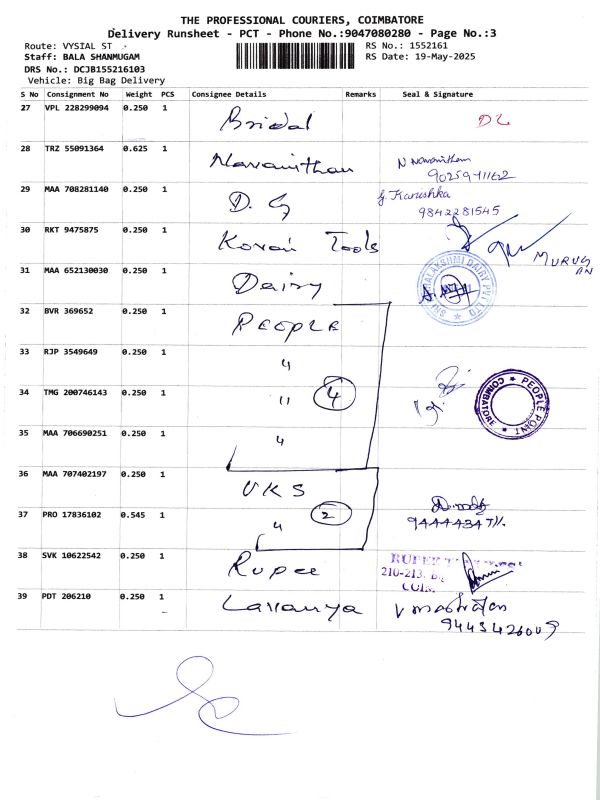 THE PROFESSIONAL COURIERS, COIMBATORE
Delivery Runsheet - PCT - Phone No.:9047080280 - Page No.:3
Route: VYSIAL ST
RS No.: 1552161
Staff: BALA SHANMUGAM
RS Date: 19-May-2025
DRS No.: DCJB155216103
Vehicle: Big Bag Delivery
S No Consignment No Weight PCS Consignee Details Remarks Seal & Signature
27 VPL 228299094 0.250 1 Bridal DL
28 TRZ 55091364 0.625 1 Navanithan N Navanithan
90259
29 MAA 708281140 0.250 1 D. G Kanishka
9842281545
30 RKT 9475875 0.250 1 Kovai Tools MURUGAN
31 MAA 652130030 0.250 1 Dairy SRI MAHALAKSHMI DAIRY PVT LTD
32 BVR 369652 0.250 1 PEOPLE
33 RJP 3549649 0.250 1 "
34 TMG 200746143 0.250 1 " 4 PEOPLE POINT COIMBATORE
35 MAA 706690251 0.250 1 "
36 MAA 707402197 0.250 1 UKS
37 PRO 17836102 0.545 1 " 2
38 SVK 10622542 0.250 1 Rupee RUPEE
210-213,
COIM.
39 PDT 206210 0.250 1 Lavanya
9443426009